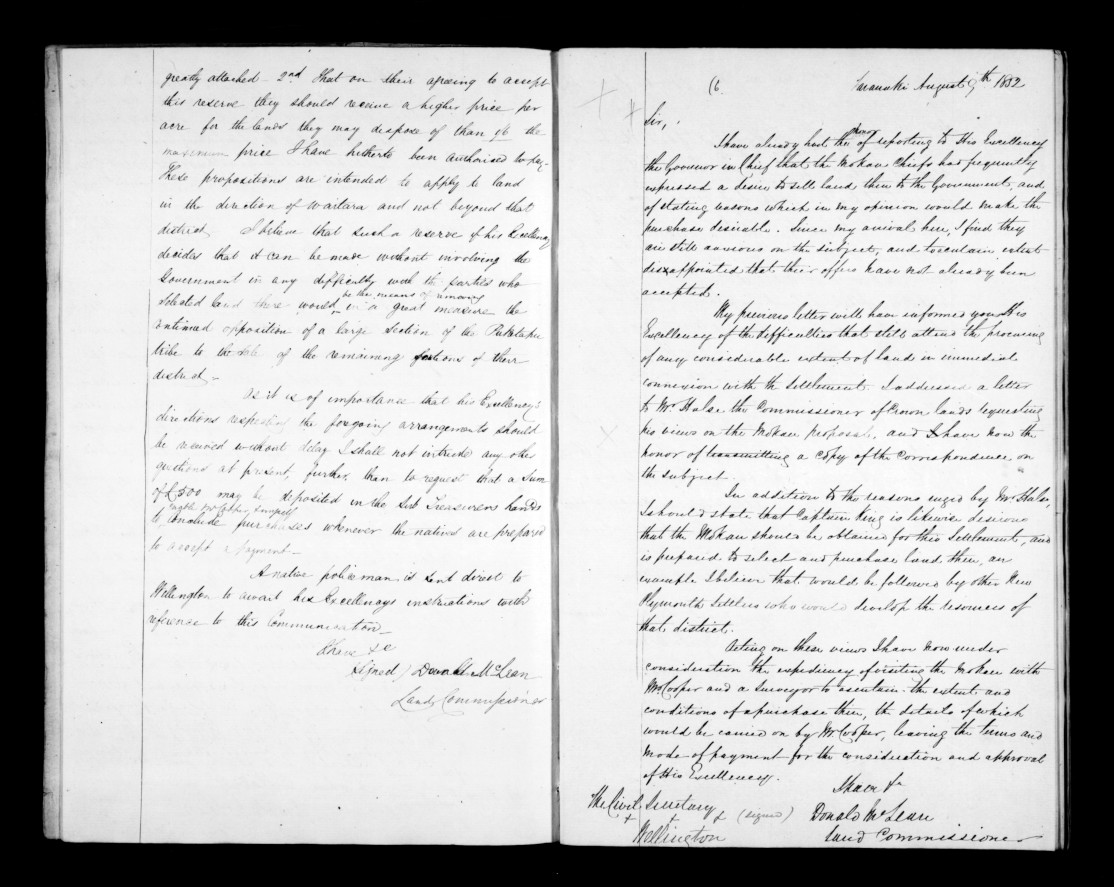 greatly attached 2nd that on their agreeing to accept
this reserve they should receive a higher price per
acre for the lands they may dispose of than the
maximum price I have hitherto been authorised to pay -
These propositions are intended to apply to land
in the direction of Waitara and not beyond that
district, I believe that such a reserve if his Excellency
decides that it can be made without involving the
Government in any difficulty with the parties who
be the means of removing
selected land there would in a great measure the
continued opposition of a large section of the Puketapu
tribe to the sale of the remaining portions of their
district -
As it is of importance that his Excellency's
directions respecting the forgoing arrangements should
be received without delay I shall not intrude any other
questions at present, further, than to request that a Sum
of £500 may be deposited in the Sub Treasurers hands
to enable Mr Cooper & myself
to conclude purchases whenever the natives are prepared
to accept payment -
A native policeman is sent direct to
Wellington to await his Excellencys instructions with
reference to this Communication -
I have &c
Signed / Donald McLean
Land Commissioner
(6
Taranaki August 9th 1852
Sir,
honor
I have already had the of reporting to His Excellency
the Governor in Chief that the Mokau Chiefs had frequently
expressed a desire to sell land there to the Government, and
of stating reasons which in my opinion would make the
purchase desirable. Since my arrival here, I find they
are still anxious on the subject, and to a certain extent
disappointed that their offers have not already been
accepted.
My previous letter will have informed you His
Excellency of the difficulties that still attend the procuring
of any considerable extent of land in immediate
connexion with the Settlement. I addressed a letter
to Mr. Halse the Commissioner of Crown lands requesting
his views on the Mokau proposal, and I have now the
honor of transmitting a copy of the correspondence on
the subject.
In addition to the reasons urged by Mr Halse,
I should state that Captain King is likewise desirous
that the Mokau should be obtained for this Settlement, and
is prepared to select and purchase land there, an
example I believe that would be followed by other New
Plymouth Settlers who would develop the resources of
that district.
Acting on these views I have now under
consideration the expediency of visiting the Mokau with
Mr. Cooper and a Surveyor to ascertain the extent and
conditions of a purchase there, the details of which
would be carried on by Mr Cooper, leaving the terms and
mode of payment for the consideration and approval
of His Excellency.
I have &c
The Civil Secretary
(signed) Donald McLean
Wellington
Land Commissioner